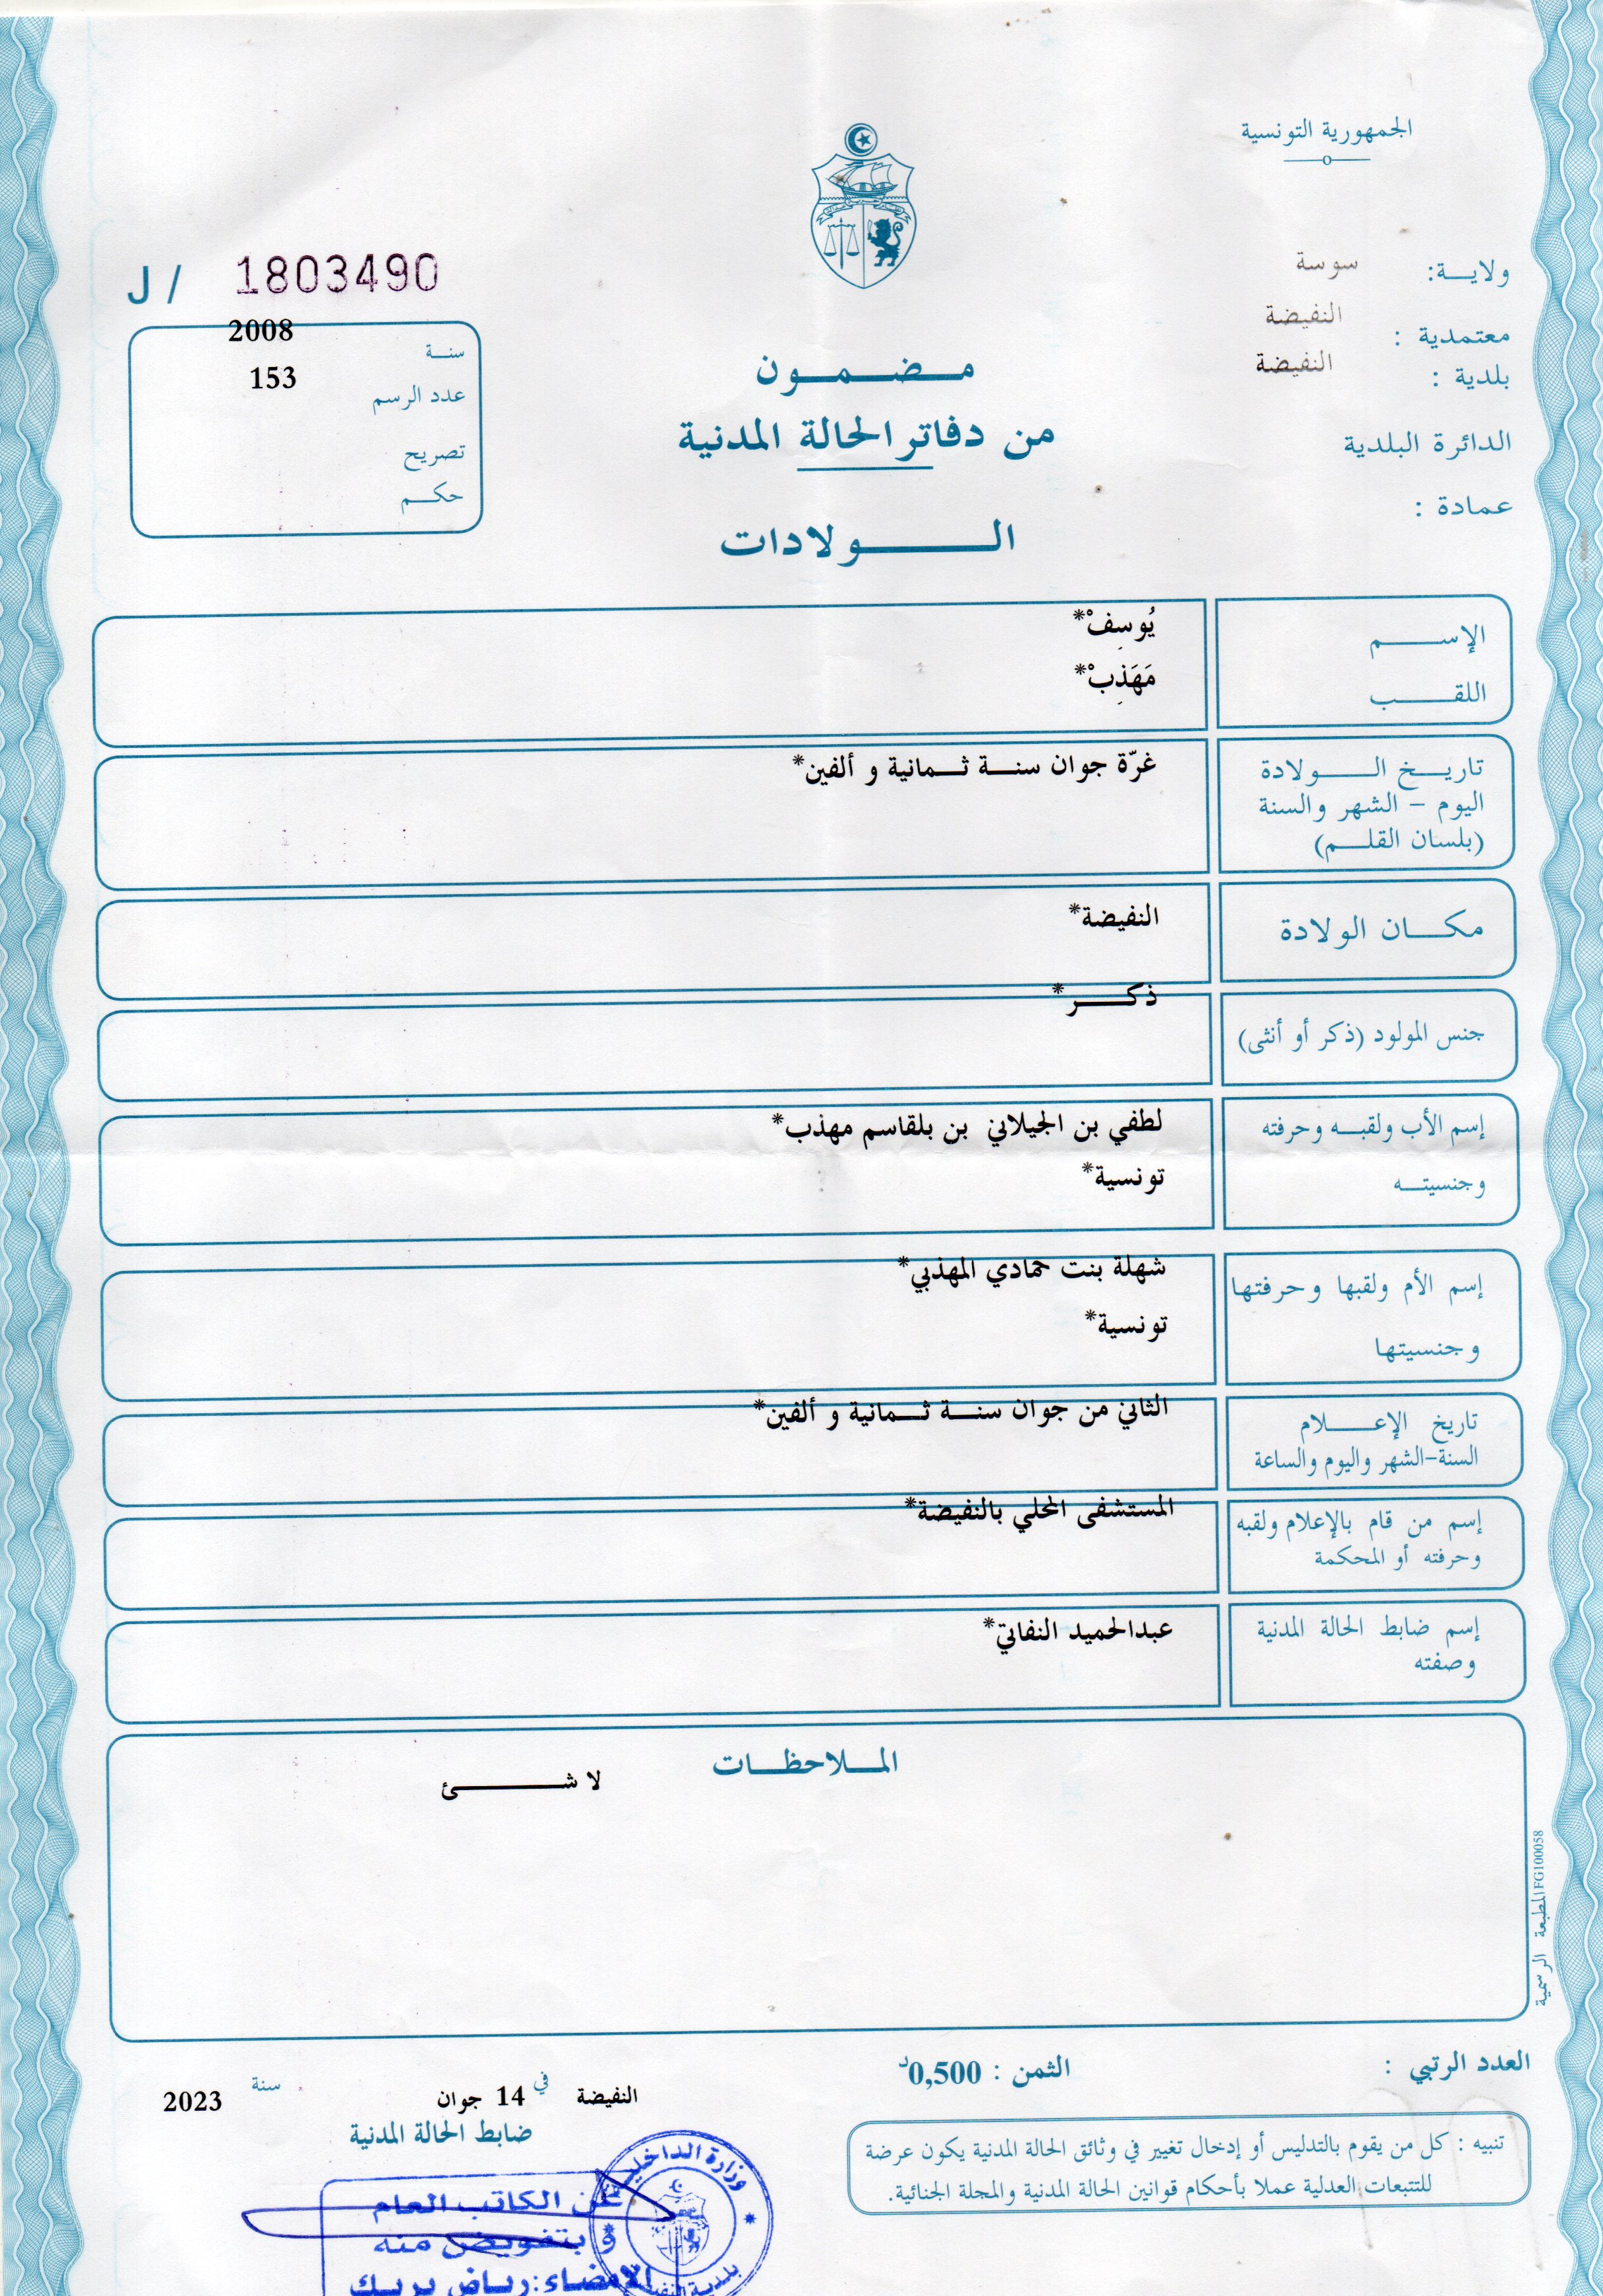 الجمهورية التونسية
ولايـــة: سوسة
معتمدية : النفيضة
بلدية : النفيضة
الدائرة البلدية
عمادة :
J / 1803490
سنـــة 2008
عدد الرسم 153
تصريح
حكـــم
مـــضـــمـــون
من دفاتر الحالة المدنية
الـــــــولادات
الإســـــم يُوسِفْ*
اللقـــــب مَهَذِبْ*
تاريـــخ الـــــولادة غرّة جوان سنـــة ثـــمانية و ألفين*
اليوم – الشهر والسنة
(بلسان القلـــم)
مكـــان الولادة النفيضة*
جنس المولود (ذكر أو أنثى) ذكـــــر*
إسم الأب ولقبـــه وحرفته لطفي بن الجيلاني بن بلقاسم مهذب*
وجنسيتـــه تونسية*
إسم الأم ولقبها وحرفتها شهلة بنت حمادي المهذبي*
وجنسيتها تونسية*
تاريخ الإعـــــلام الثاني من جوان سنـــة ثـــمانية و ألفين*
السنة–الشهر واليوم والساعة
إسم من قام بالإعلام ولقبه المستشفى المحلي بالنفيضة*
وحرفته أو المحكمة
إسم ضابط الحالة المدنية عبدالحميد النفاتي*
وصفته
المـــلاحظـــات
لا شـــــــئ
المطبعة الرسمية FG100058
العدد الرتبي :
الثمن : 0,500د
النفيضة في 14 جوان سنة 2023
ضابط الحالة المدنية
تنبيه : كل من يقوم بالتدليس أو إدخال تغيير في وثائق الحالة المدنية يكون عرضة
للتتبعات العدلية عملا بأحكام قوانين الحالة المدنية والمجلة الجنائية.
عن الكاتب العام
و بتفويض منه
الامضاء: رياض بريك
وزارة الداخلية
بلدية النفيضة